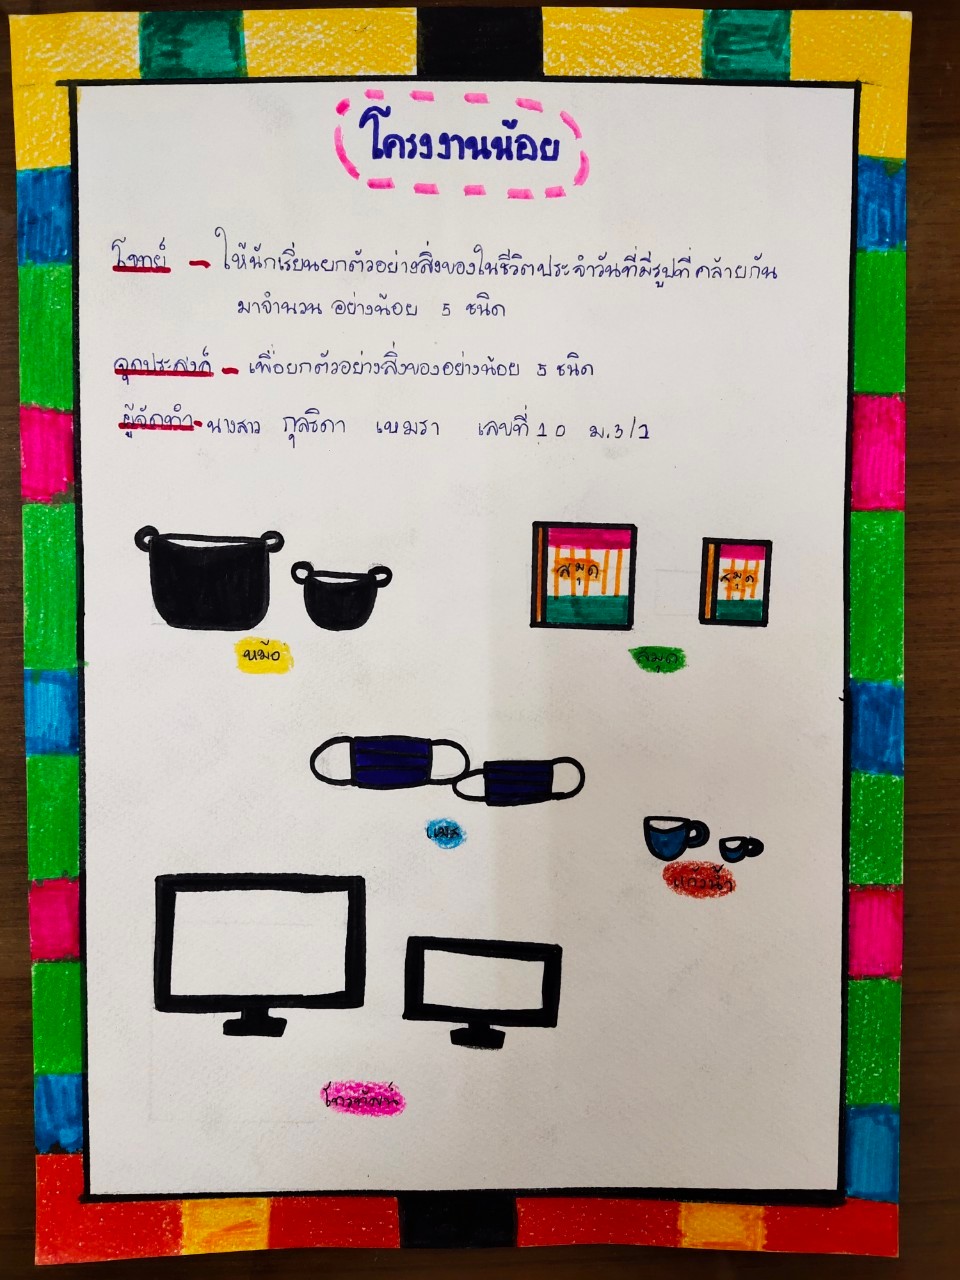 โครงงานน้อย
โจทย์ - ให้นักเรียนยกตัวอย่างสิ่งของในชีวิตประจำวันที่มีรูปที่คล้ายกัน
มาจำนวน อย่างน้อย 5 ชนิด
จุดประสงค์ - เพื่อยกตัวอย่างสิ่งของอย่างน้อย 5 ชนิด
ผู้จัดทำ - นางสาว กุลธิดา เหมรา เลขที่ 10 ม.3/1
สมุด สมุด
หม้อ สมุด
แมส
แก้วน้ำ
โทรทัศน์